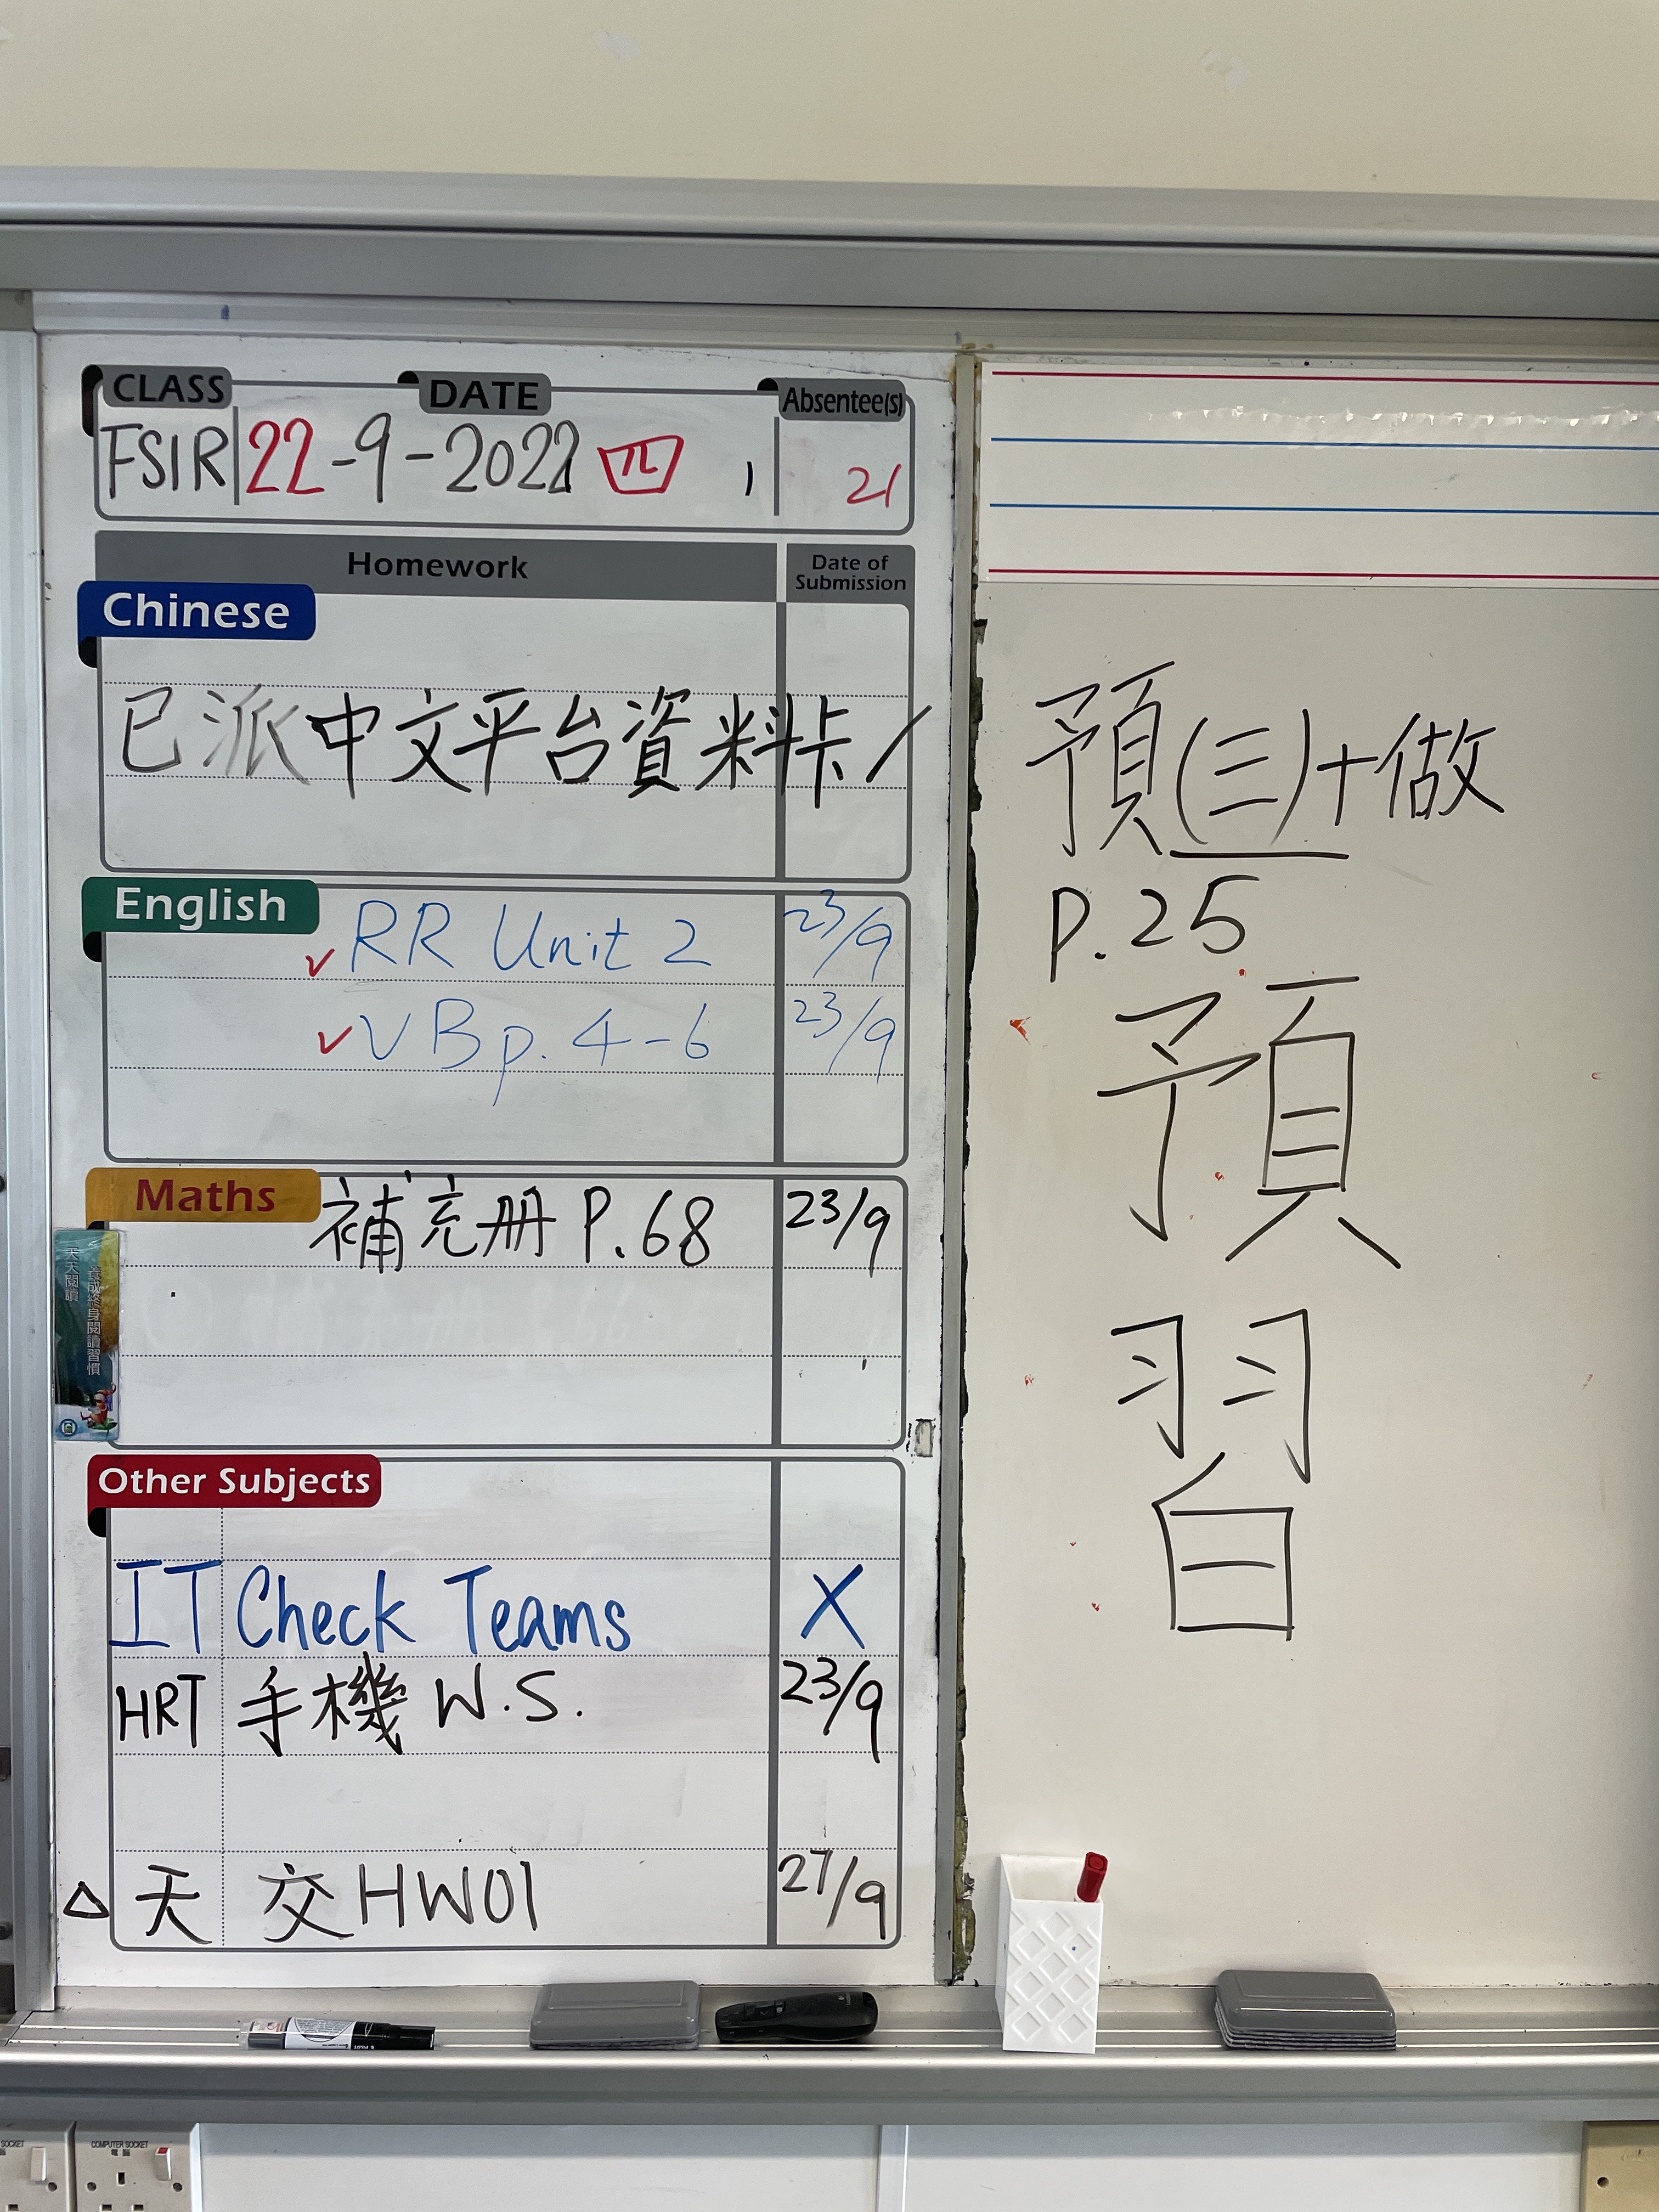 CLASS DATE Absentee(s)
FSIR 22-9-2022 四 1 21
Homework Date of Submission
Chinese
已派中文平台資料卡 /
English
✓ RR Unit 2 23/9
✓ VB p. 4-6 23/9
Maths
補充册 P.68 23/9
天天閱讀
養成終身閱讀習慣
Other Subjects
IT Check Teams X
HRT 手機 W.S. 23/9
△ 天 交HW01 27/9
預(三)+做
P.25
預
習
COMPUTER SOCKET
電腦
SOCKET